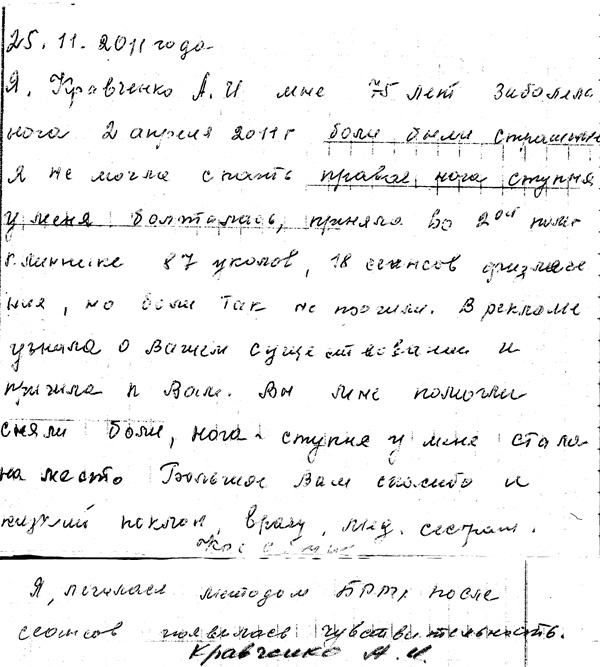 25.11.2011 года
Я, Кравченко А.И мне 75 лет Заболела
нога 2 апреля 2011г боли были страшные
Я не могла спать правая нога ступня
у меня болталась, приняла во 2ой поли-
клинике 87 уколов, 18 сеансов физлече
ния, но боли так не прошли. В рекламе
узнала о вашем существовании и
пришла к Вам. Вы мне помогли
сняли боли, нога - ступня у меня стала
на место Большое Вам спасибо и
низкий поклон, врачу, мед. сестрам.
Я, лечилась методом БРТ, после
сеансов появилась чувствительность.
Кравченко А.И.